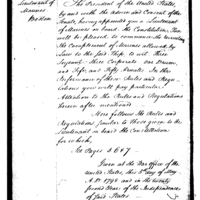 Lieutenant of
Marines
The President of the United States,
by and with the advice and Consent of the
Senate, having appointed you a Lieutenant
of Marines on board the Constitution, You
will be pleased to commence the recruiting
the Complement of Marines allowed by
Law to the said Ship to wit Three
Serjeants, three Corporals one Drummer,
and Fife, and Fifty Marines. In the
performance of these Rules and Regu-
lations you will pay particular
Attention to the Rules and Regulations
herein after mentioned.
Here follows the Rules and
Regulations similar to those given to the
Lieutenant on board the Constellation
for which,
See Pages 5 6 &7
Given at the War office of the
United States, this 5 day of May
A.D. 1798 and in the twenty
second Year of the Independence
of said States.